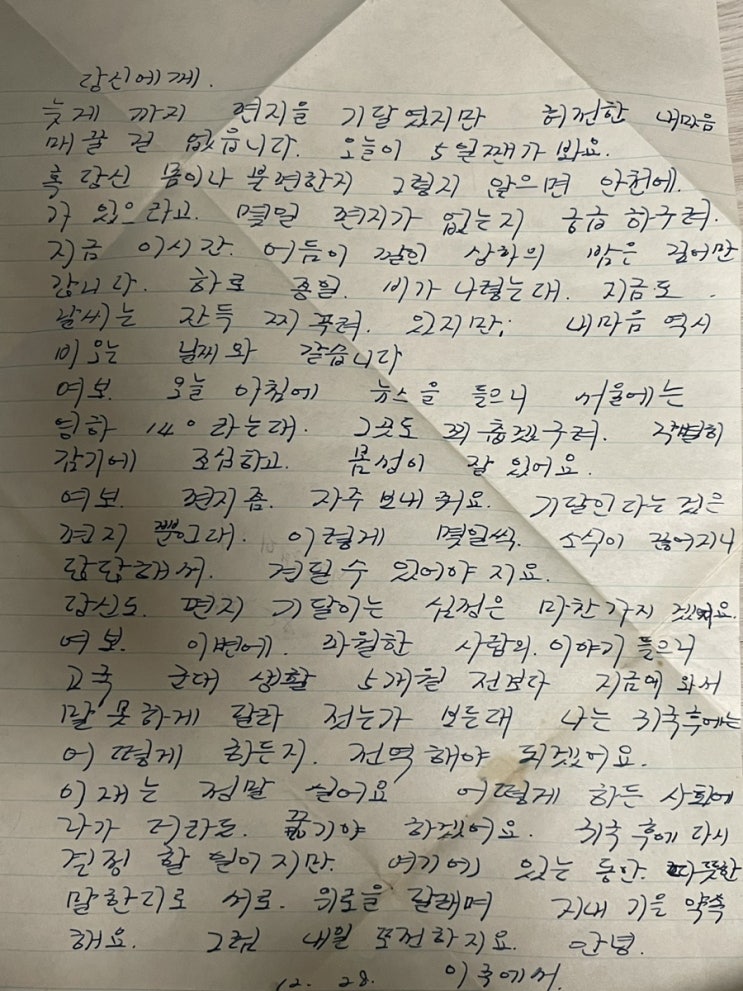 당신에게.
늦게 까지 편지을 기달였지만 허전한 내마음
매꿀 길 없읍니다. 오늘이 5일째가 봐요.
혹 당신 몸이나 불편한지 그렇지 않으면 안천에.
가 있으라고. 몇일 편지가 없는지 궁금 하구려.
지금 이시간. 어듬이 깔인 삼학의 밤은 깊어만
갑니다. 하로 종일. 비가 나렸는대. 지금도.
날씨는 잔득 찌푸려. 있지만; 내마음 역시
비오는 날씨와 같습니다
여보. 오늘 아침에 뉴스을 들으니 서울에는
영하 14°라는대. 그곳도 꾀 춥겠구려. 각별히
감기에 조심하고. 몸성이 잘 있어요.
여보. 편지좀. 자주 보내 줘요. 기달인다는 것은
편지 뿐인대. 이렇게 몇일씩. 소식이 끊어지니
답답해서. 견딜 수 있어야 지요.
당신도. 편지 기달이는 심정은 마찬가지 겠어요.
여보. 이번에. 파월한 사람의. 이야기 들으니
고국 군대 생활 5개월 전보다 지금에 와서
말 못하게 달라 젔는가 보든대 나는 귀국후에는
어떻게 하든지. 전역해야 되겠어요.
이재는 정말 싫어요 어떻게 하든 사회에
나가 더라도. 굶기야 하겠어요. 귀국 후에 다시
결정 할 일이지만. 여기에 있는 동안. 따뜻한
말한디로 서로. 위로을 달래며 지내 기을 약속
해요. 그럼 내일 또전하지요. 안녕.
12. 28. 이국에서.